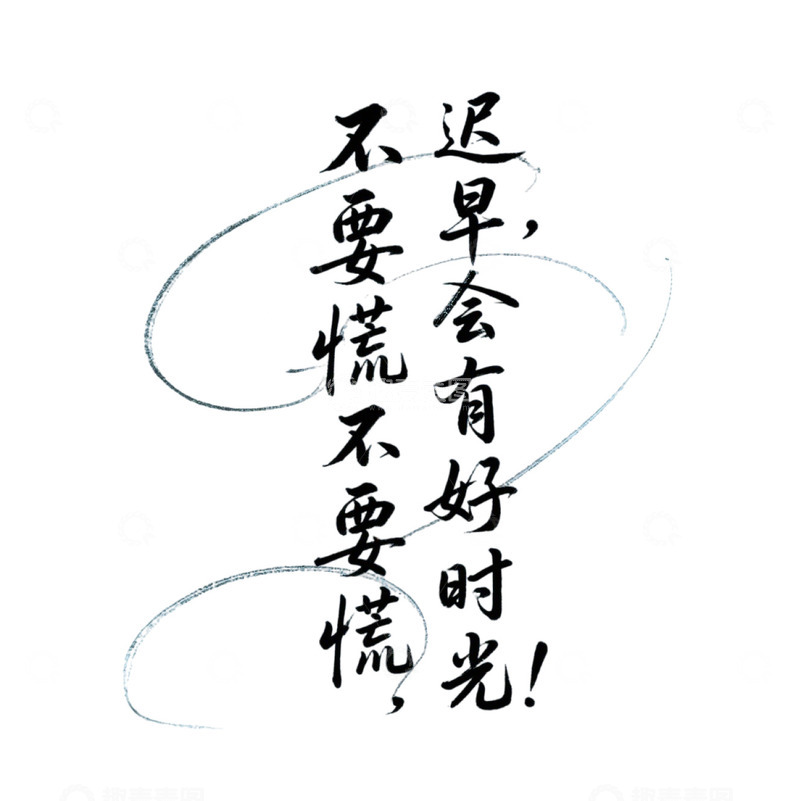 不要慌不要慌，
迟早，会有好时光！